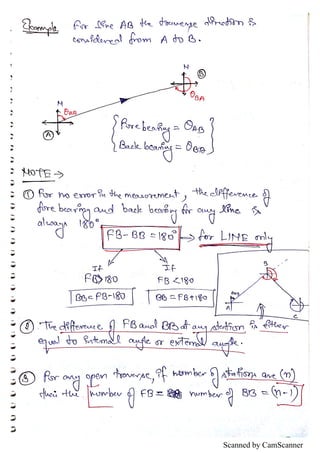 Example For line AB the traverse direction is
considered from A to B.
N
B
N
θAB
θBA
A
{ Fore bearing = θAB }
{ Back bearing = θBA }
NOTE →
① For no error in the measurement, the difference of
fore bearing and back bearing for any line is
always 180°
FB-BB = 180° → for LINE only
If If
FB>180 FB<180
BB = FB-180 BB = FB+180
B
A
C
② The difference of FB and BB at any station is either
equal to internal angle or external angle.
③ For any open traverse, if number of stations are (n)
then the number of FB = number of BB = (n-1)
Scanned by CamScanner